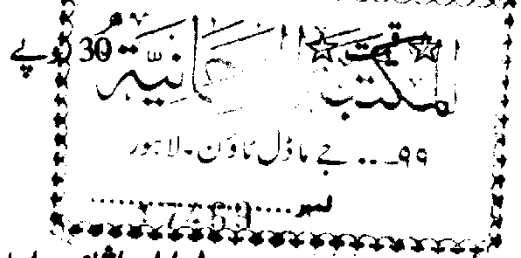 ☆ قیمت ☆ 30 روپے
المکتبۃ الرحمانیۃ
۹۹... جے ماڈل ٹاؤن۔ لاہور
نمبر